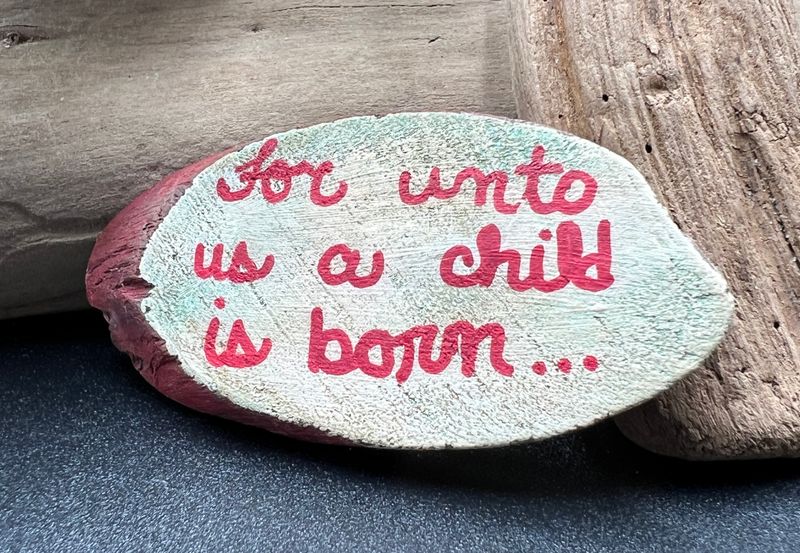 For unto
us a child
is born...